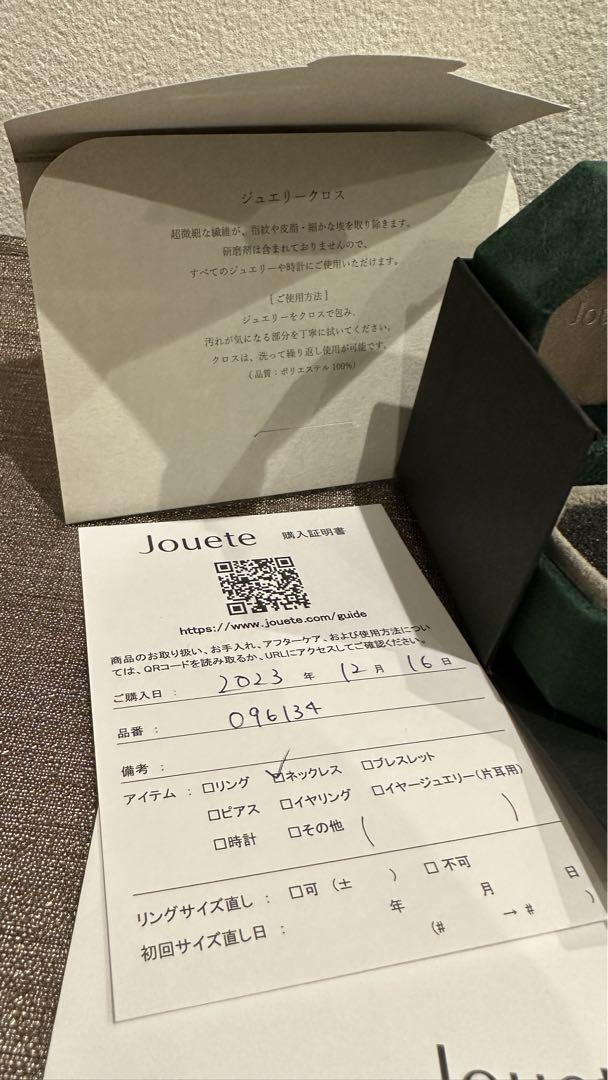 ジュエリークロス
超微細な繊維が、指紋や皮脂・細かな埃を取り除きます。
研磨剤は含まれておりませんので、
すべてのジュエリーや時計にご使用いただけます。
[ご使用方法]
ジュエリーをクロスで包み、
汚れが気になる部分を丁寧に拭いてください。
クロスは、洗って繰り返し使用が可能です。
(品質：ポリエステル100%)
Jou
Jouete 購入証明書
https://www.jouete.com/guide
商品のお取り扱い、お手入れ、アフターケア、および使用方法につい
ては、QRコードを読み取るか、URLにアクセスしてご確認ください。
ご購入日： 2023 年 12 月 16 日
品番： 096134
備考：
アイテム：□リング ☑ネックレス □ブレスレット
□ピアス □イヤリング □イヤージュエリー(片耳用)
□時計 □その他 ( )
リングサイズ直し： □可 (± ) □不可
初回サイズ直し日： 年 月 日
(# → # )
Jouete